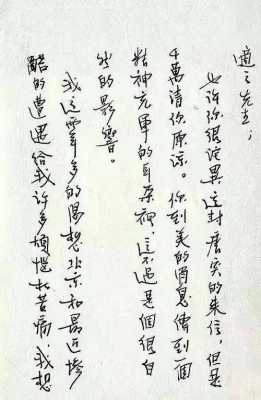 適之先生：
也許你很詫異這封唐突的來信，但是
千萬請你原諒。你到美的消息傳到一個
精神充軍的耳朵裡，這不過是個很自
然的影響。
我這兩年多的渴想北京和最近慘
酷的遭遇給我許多煩惱和苦痛。我想